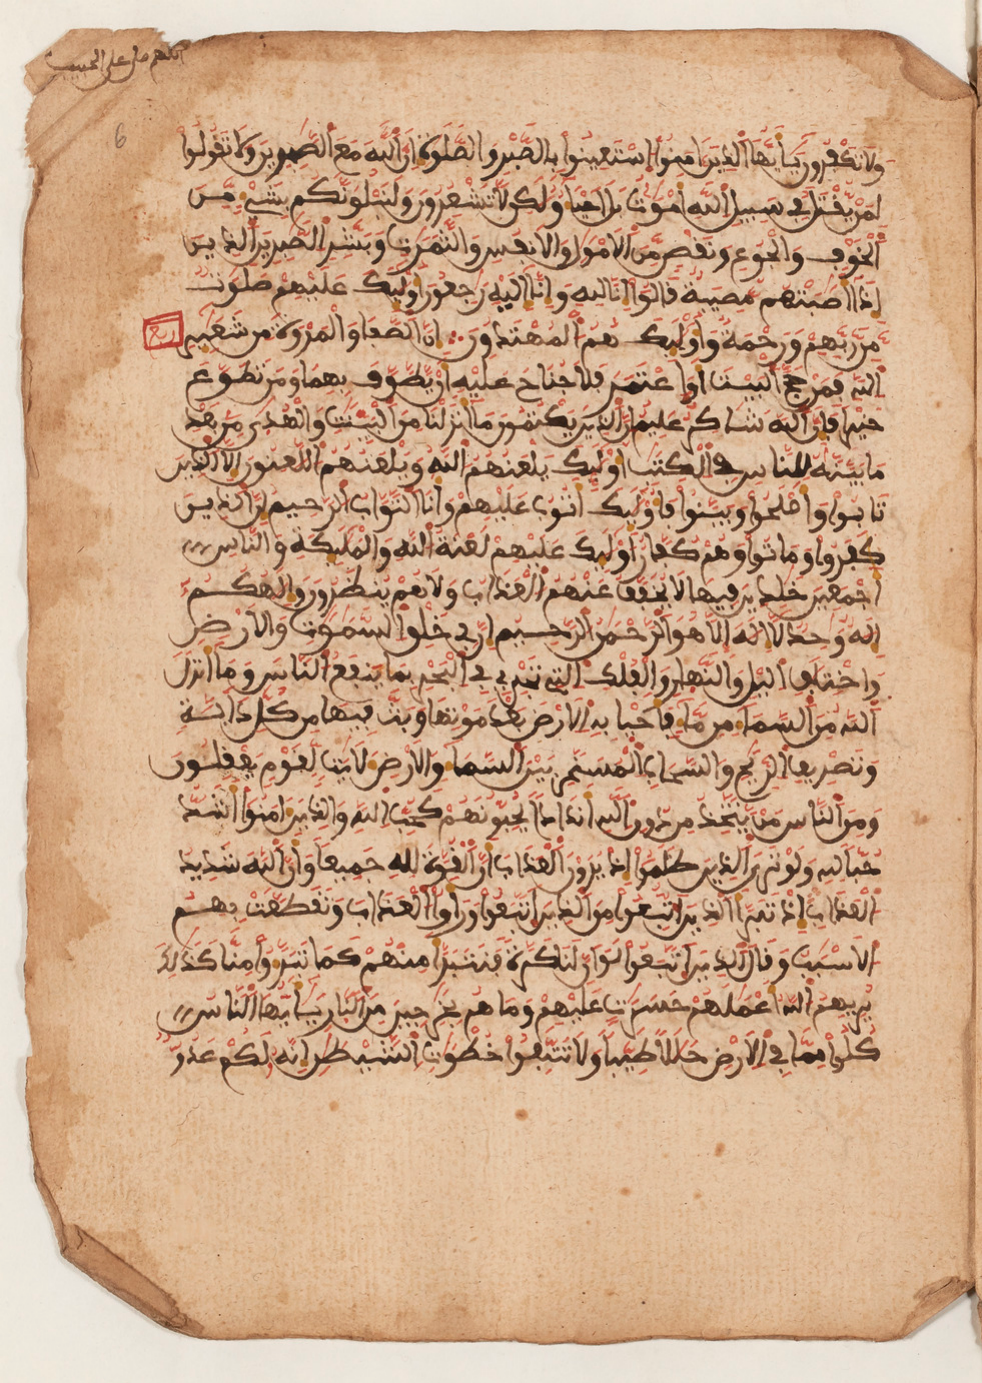 اللهم صل على الحبيب
6
ولا تكفرون يأيها الذين امنوا استعينوا بالصبر والصلوة ان الله مع الصبرين ولا تقولوا
لمن يقتل في سبيل الله اموت بل احيا ولكن لا تشعرون ولنبلونكم بشيء من
الخوف والجوع ونقص من الاموال والانفس والثمرت وبشر الصبرين الذين
اذا اصبتهم مصيبة قالوا انا لله وانا اليه رجعون اوليك عليهم صلوت
من ربهم ورحمة واوليك هم المهتدون ان الصفا والمروة من شعير
ربع
الله فمن حج البيت او اعتمر فلا جناح عليه ان يطوف بهما ومن تطوع
خيرا فان الله شاكر عليم ان الذين يكتمون ما انزلنا من البينت والهدى من بعد
ما بينه للناس في الكتب اوليك يلعنهم الله ويلعنهم اللعنون الا الذين
تابوا واصلحوا وبينوا فاوليك اتوب عليهم وانا التواب الرحيم ان الذين
كفروا وماتوا وهم كفار اوليك عليهم لعنة الله والمليكة والناس
اجمعين خلدين فيها لا يخفف عنهم العذاب ولا هم ينظرون والهكم
اله وحد لا اله الا هو الرحمن الرحيم ان في خلق السموت والارض
واختلف اليل والنهار والفلك التي تجري في البحر بما ينفع الناس وما انزل
الله من السما من ما فاحيا به الارض بعد موتها وبث فيها من كل دابة
وتصريف الريح والسحاب المسخر بين السما والارض لايت لقوم يعقلون
ومن الناس من يتخذ من دون الله اندادا يحبونهم كحب الله والذين امنوا اشد
حبا لله ولو ترى الذين ظلموا اذ يرون العذاب ان القوة لله جميعا وان الله شديد
العذاب اذ تبرا الذين اتبعوا من الذين اتبعوا وراوا العذاب وتقطعت بهم
الاسبب وقال الذين اتبعوا لو ان لنا كرة فنتبرا منهم كما تبروا منا كذلك
يريهم الله اعملهم حسرت عليهم وما هم بخرجين من النار يأيها الناس
كلوا مما في الارض حللا طيبا ولا تتبعوا خطوت الشيطن انه لكم عدو